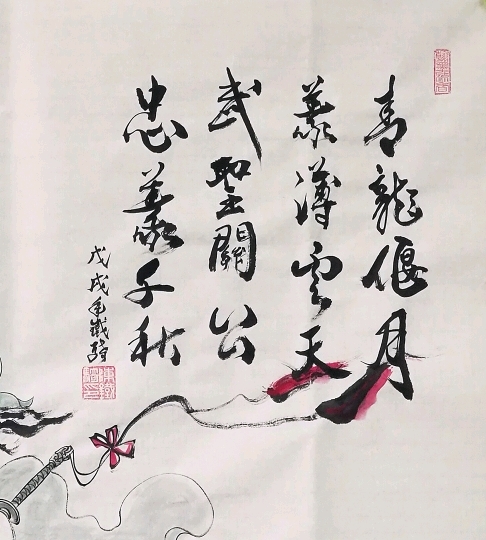 青龍偃月
義薄雲天
武聖關公
忠義千秋
戊戌年